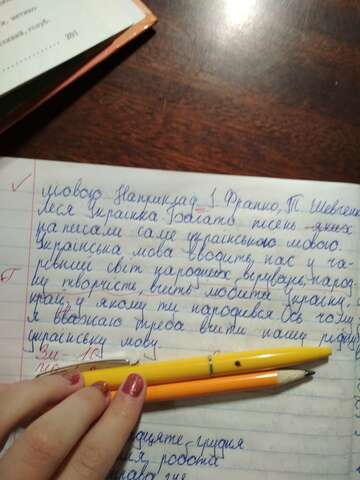 я, читаю-
ський, голуб.
201
мовою. Наприклад І. Франко, Т. Шевчен
Леся Українка Багато пісень яких
написали саме українською мовою.
Українська мова вводить нас у ча-
рівний світ народних
ну творчість, вчить любити Україну,
край, у якому ти народився Ось чому
я вважаю треба вчити нашу рідну
українську мову.
Зм - 10
дцяте грудня
робота